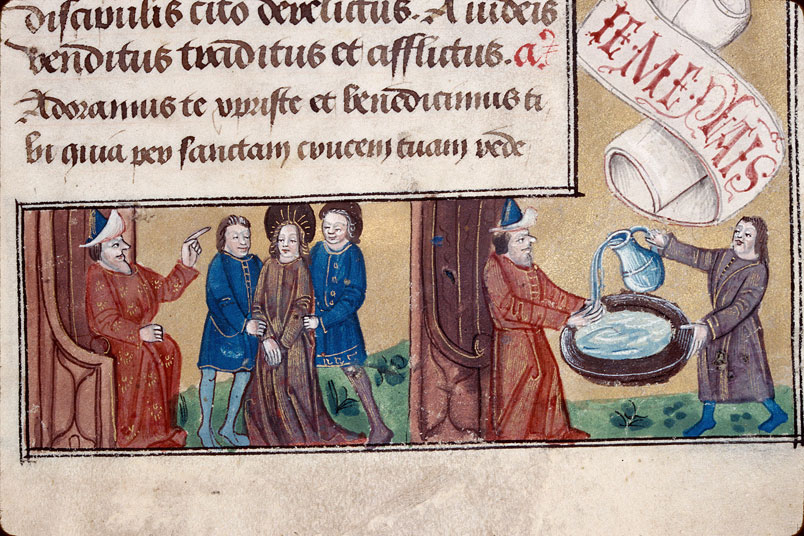 discipulis cito derelictus. A iudeis
venditus traditus et afflictus.
Adoramus te xpriste et benedicimus ti
bi quia per sanctam crucem tuam rede
IEMEPLAIS